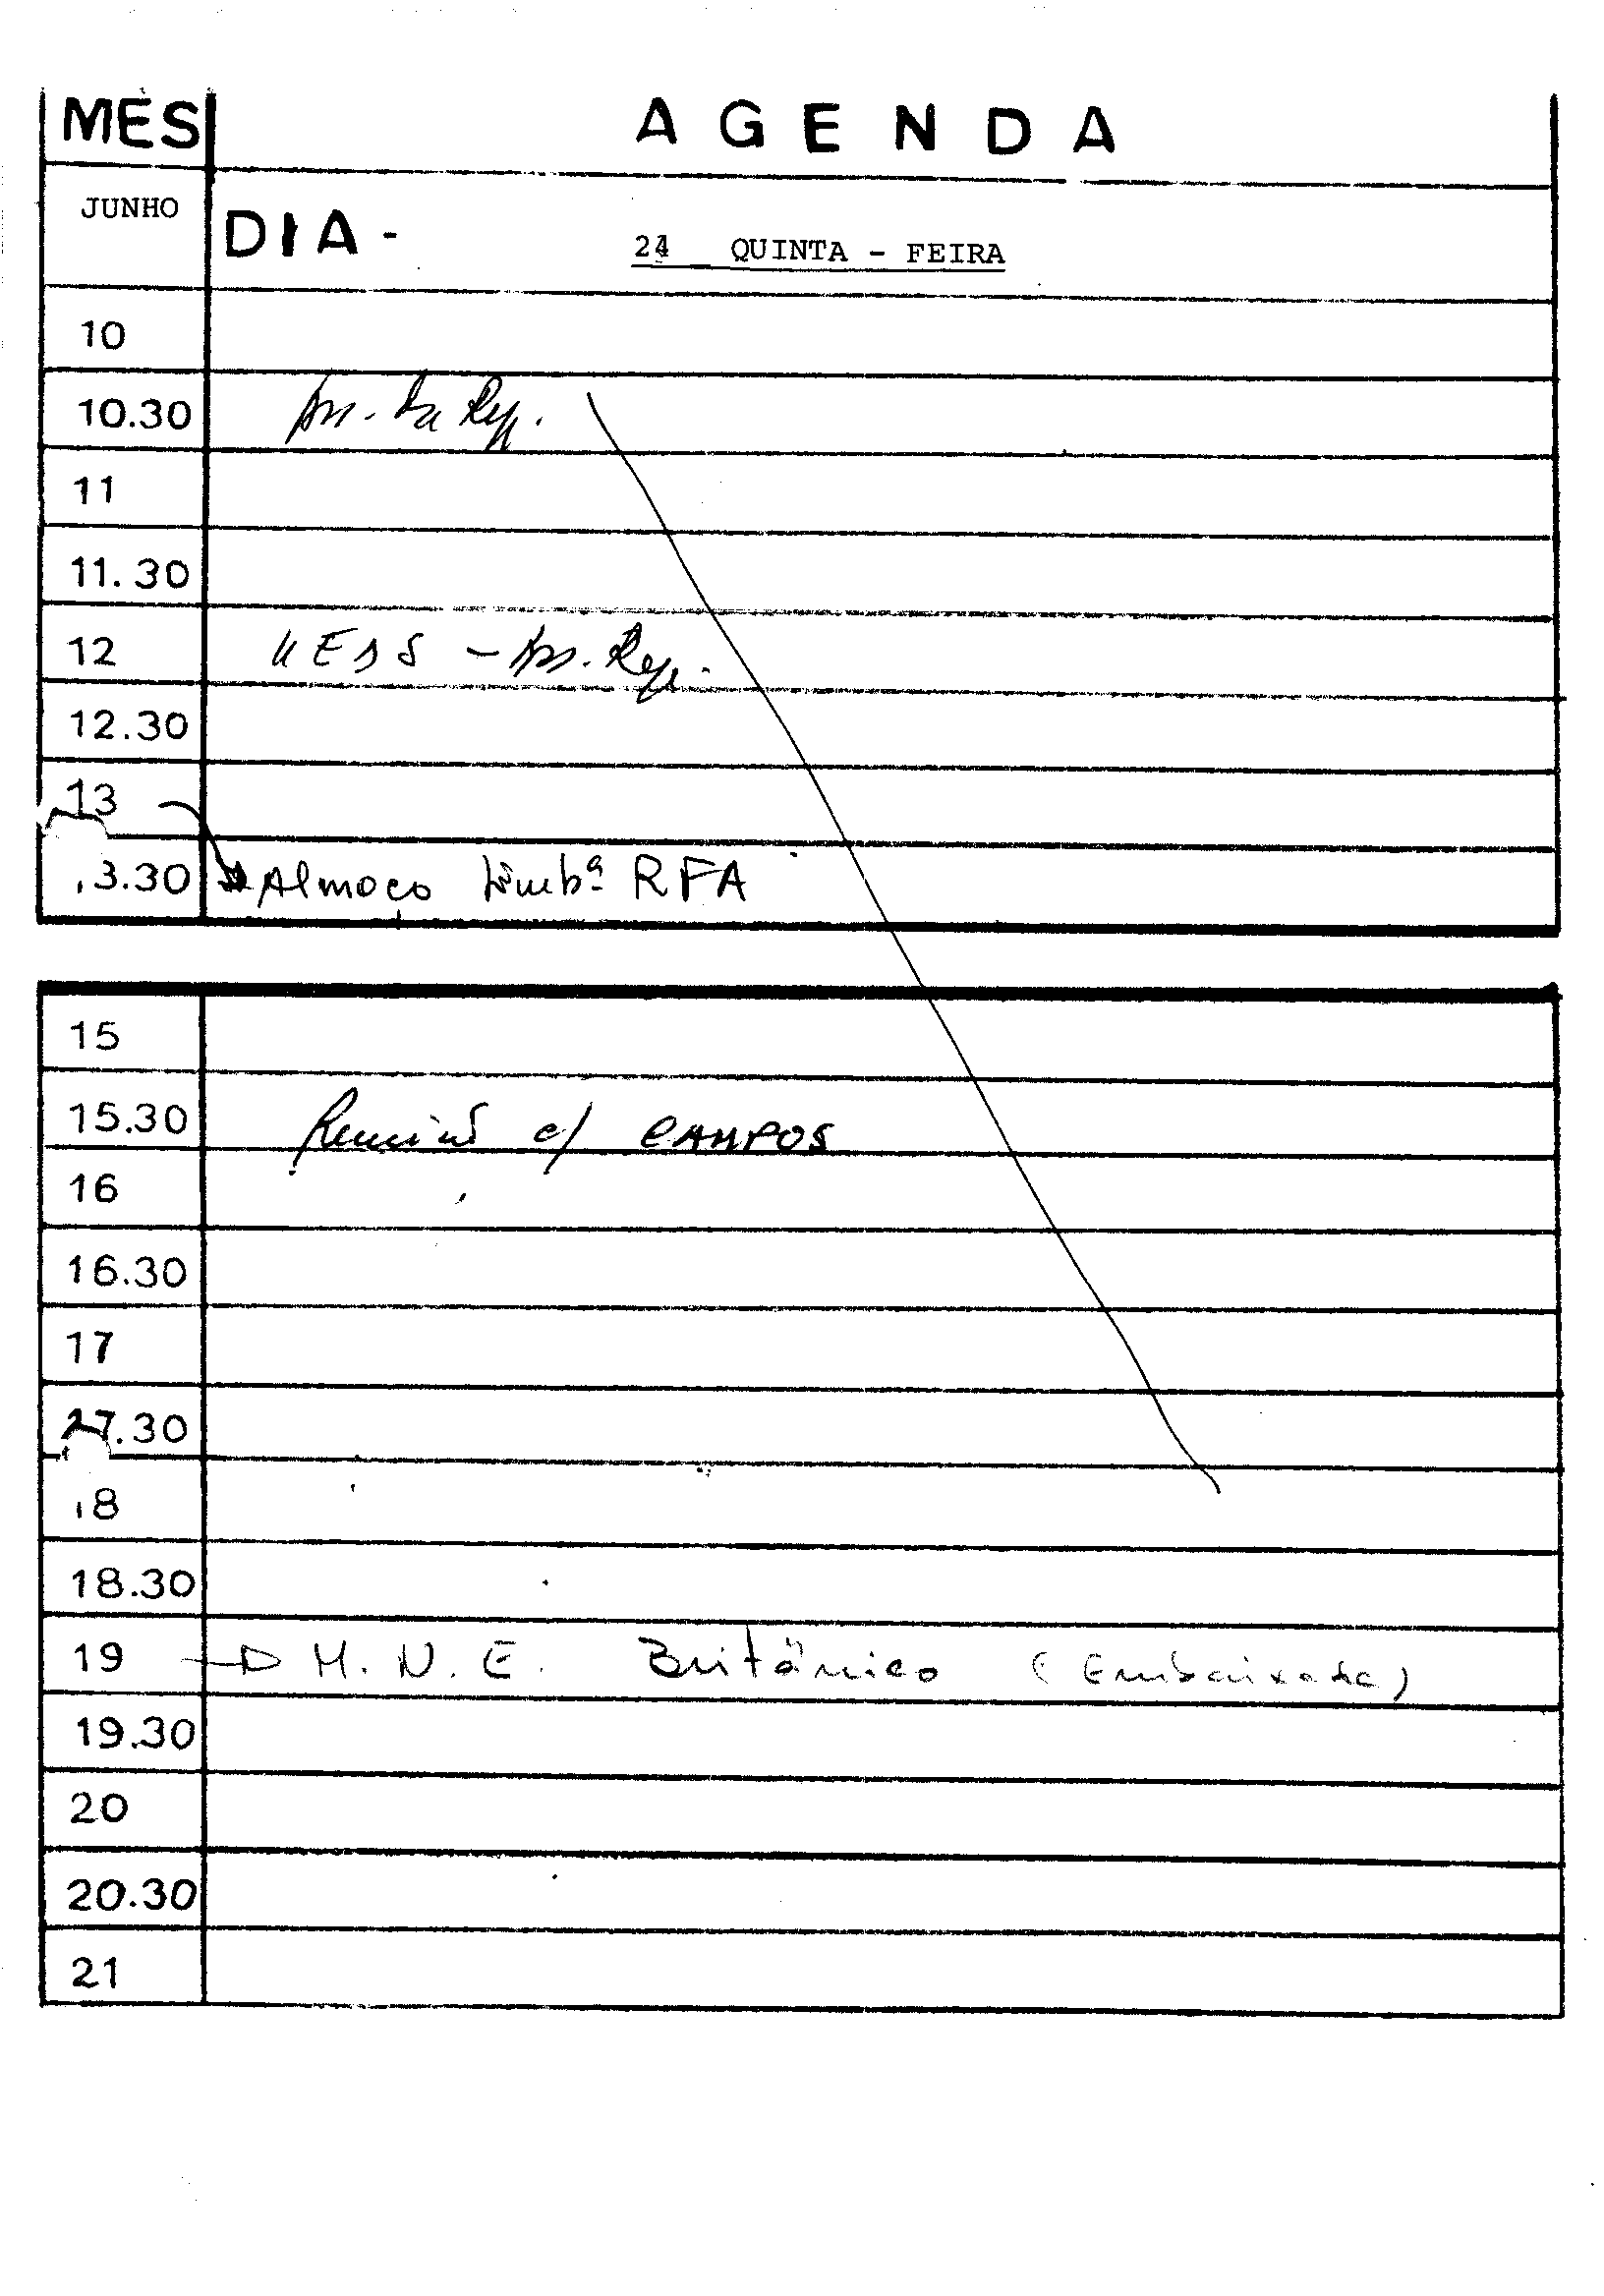 MÊS AGENDA
JUNHO DIA - 24 QUINTA - FEIRA
10
10.30 Ass. da Rep.
11
11.30
12 UEDS - Ass. Rep.
12.30
13
13.30 Almoço Embª RFA
15
15.30 Reunião c/ CAMPOS
16
16.30
17
17.30
18
18.30
19 M.N.E. Britânico (Embaixada)
19.30
20
20.30
21